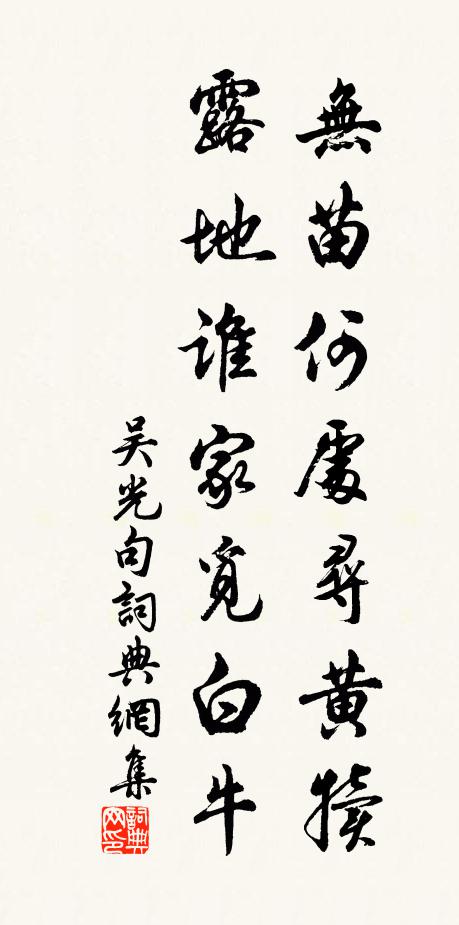 無苗何處尋黃犢
露地誰家覓白牛
吴光句詞典網集
詞典网印